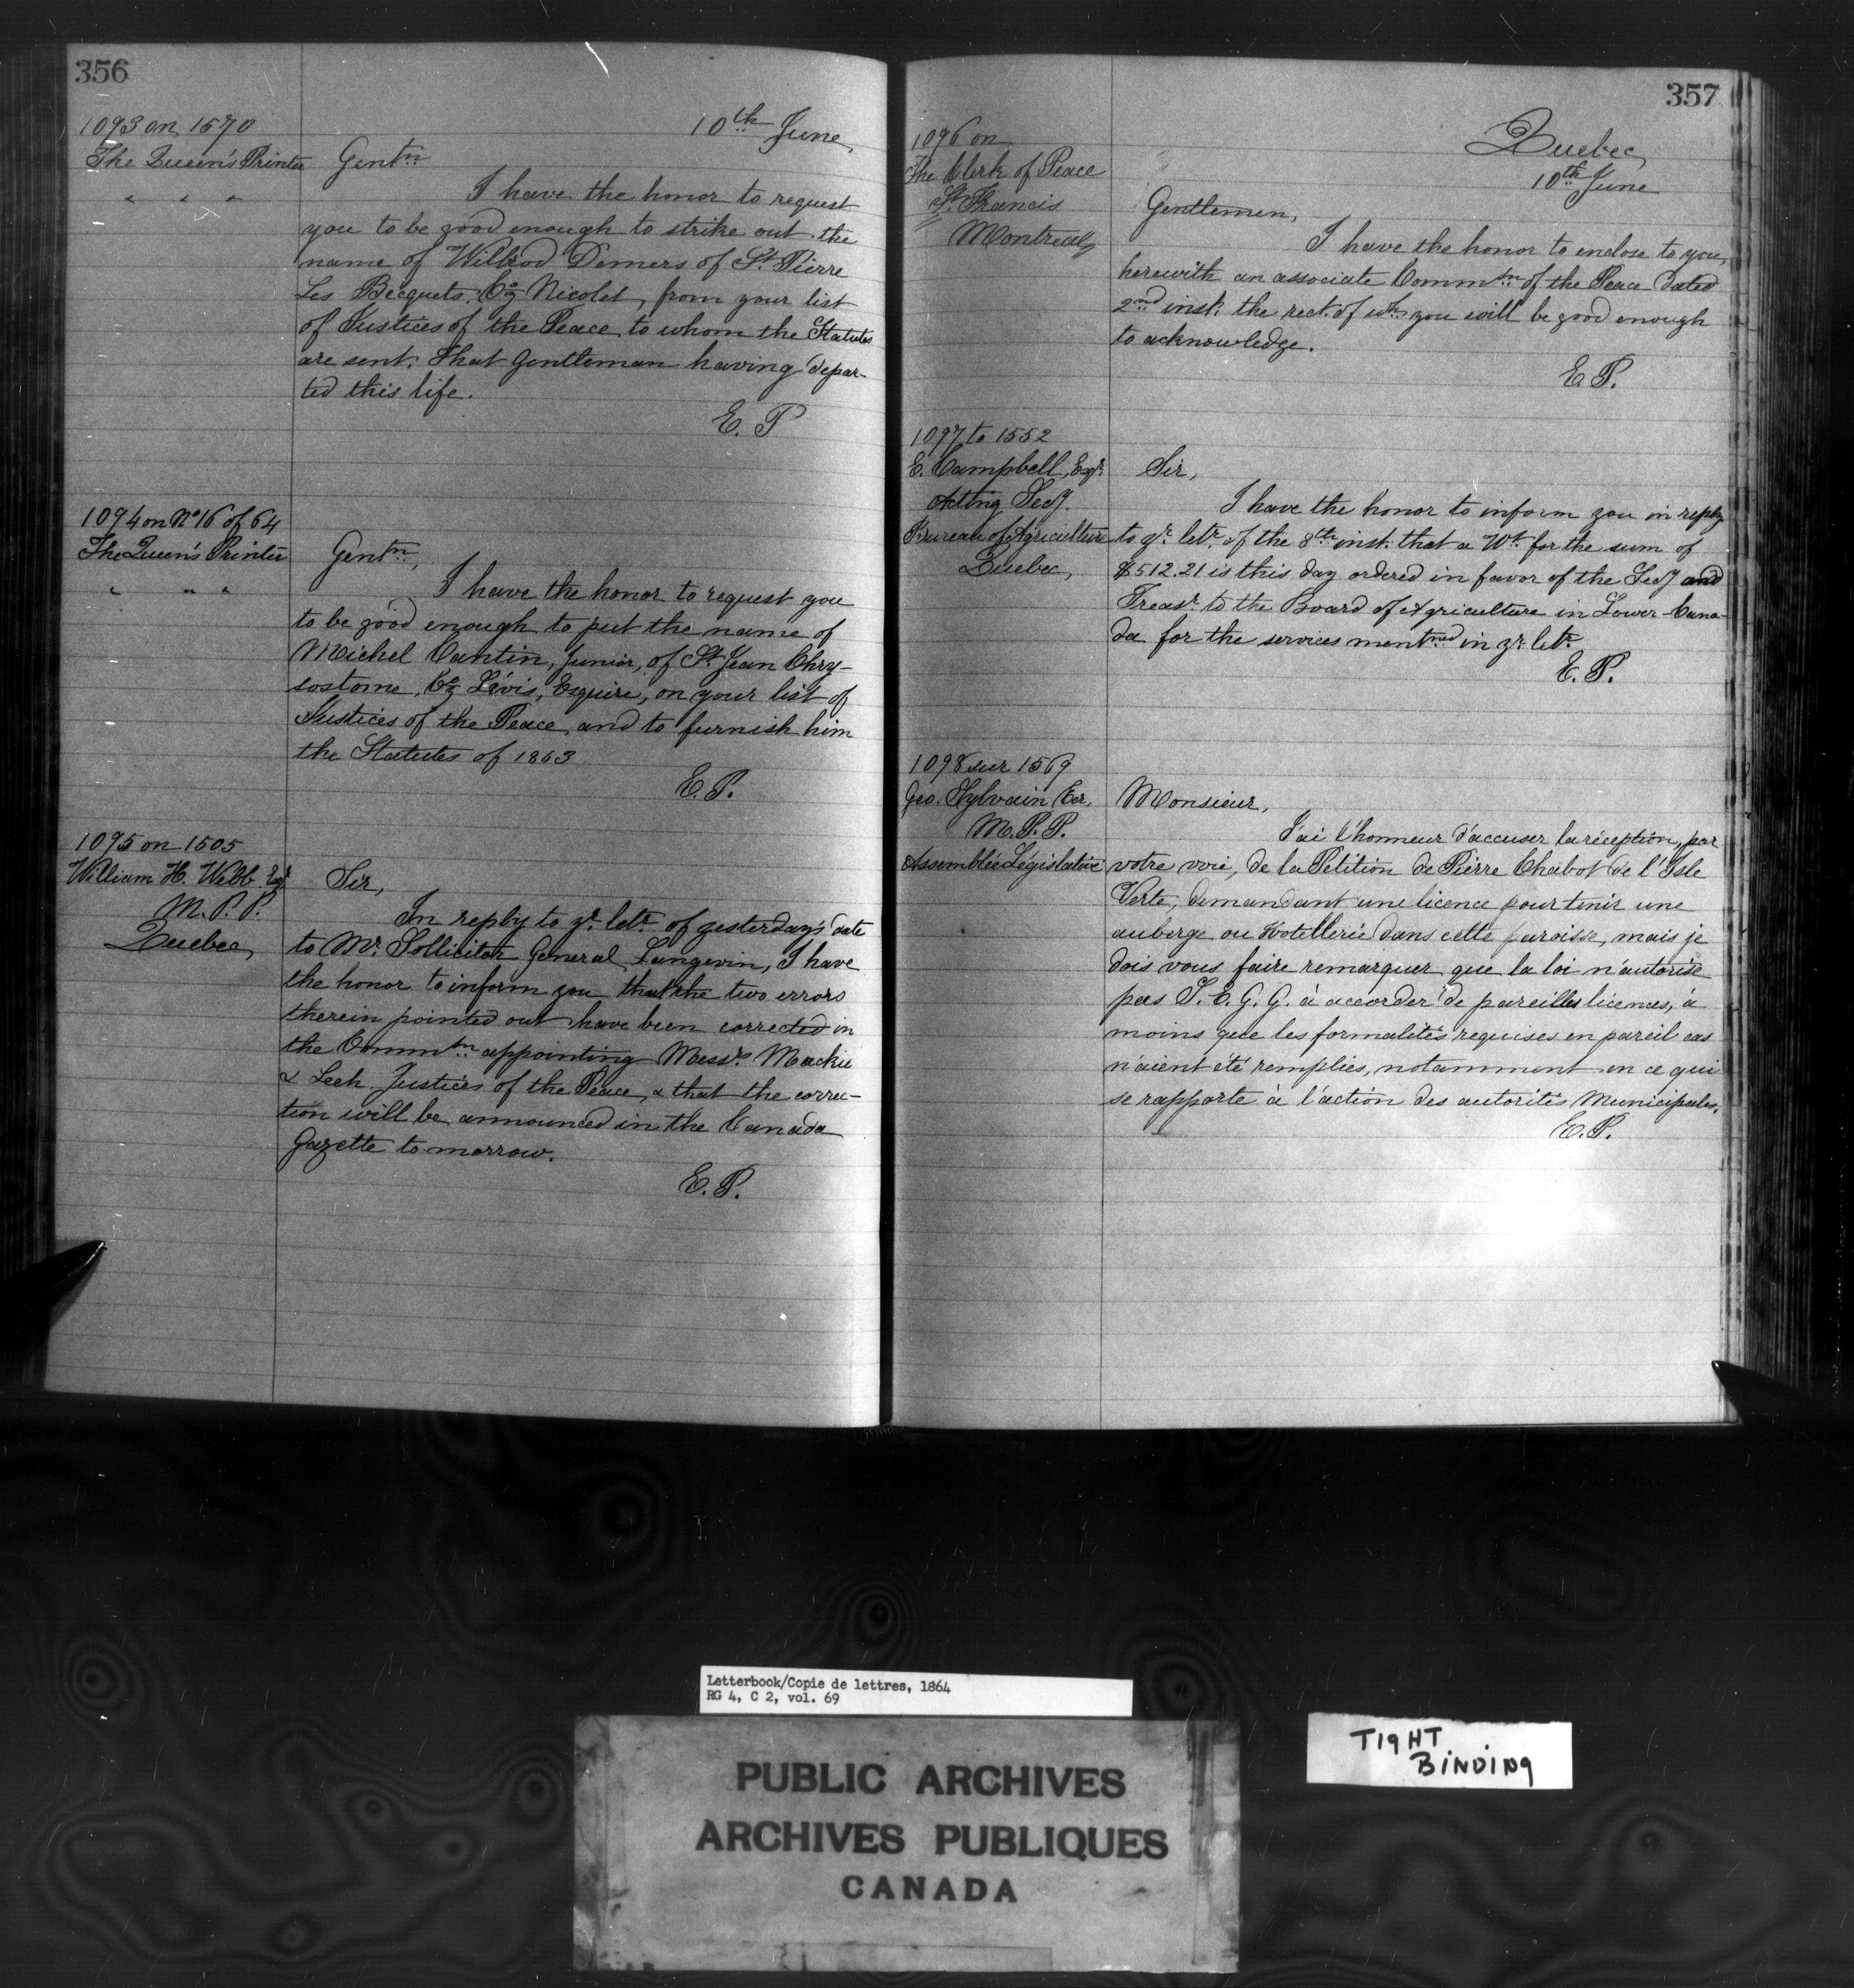 356
10th June
1093 on 1570
The Queen's Printer
" " "
Gentn
I have the honor to request
you to be good enough to strike out the
name of Wilbrod Demers of St. Pierre
Les Becquets, Co. Nicolet, from your list
of Justices of the Peace to whom the Statutes
are sent. That Gentleman having depar-
ted this life.
E. P
1094 on No 16 of 64
The Queen's Printer
" " "
Gentn,
I have the honor to request you
to be good enough to put the name of
Michel Cantin, Junior, of St. Jean Chry-
sostome, Co. Lévis, Esquire, on your list of
Justices of the Peace, and to furnish him
the Statutes of 1863
E. P.
1095 on 1505
William H. Webb Esqr
M. P. P.
Quebec,
Sir,
In reply to yr. letr. of yesterday's date
to Mr. Sollicitor General Langevin, I have
the honor to inform you that the two errors
therein pointed out have been corrected in
the Commtn appointing Messrs Mackie
& Leek Justices of the Peace, & that the correc-
tion will be announced in the Canada
Gazette to morrow.
E. P.
357
Quebec,
10th June
1096 on
The Clerk of Peace
St. Francis
Montreal
Gentlemen,
I have the honor to enclose to you,
herewith an associate Commsn of the Peace dated
2nd inst. the rect. of wh. you will be good enough
to acknowledge.
E. P.
1097 to 1552
E. Campbell, Esqr.
Acting Secy.
Bureau of Agriculture
Quebec,
Sir,
I have the honor to inform you in reply
to yr. letr. of the 8th inst. that a Wt. for the sum of
$512.21 is this day ordered in favor of the Secy and
Treasr. to the Board of Agriculture in Lower-Cana-
da for the services mentned in yr. letr.
E. P.
1098 sur 1569
Geo. Sylvain Ecr,
M. P. P.
Assemblée Législative
Monsieur,
J'ai l'honneur d'accuser la réception, par
votre voie, de la Pétition de Pierre Chabot de l'Isle
Verte, demandant une licence pour tenir une
auberge ou Hotellerie dans cette paroisse, mais je
dois vous faire remarquer que la loi n'autorise
pas S. E. G. G. à accorder de pareilles licences, à
moins que les formalités requises en pareil cas
n'aient été remplies, notamment en ce qui
se rapporte à l'action des autorités Municipales.
E. P.
Letterbook/Copie de lettres, 1864
RG 4, C 2, vol. 69
PUBLIC ARCHIVES
ARCHIVES PUBLIQUES
CANADA
TIGHT
BINDING